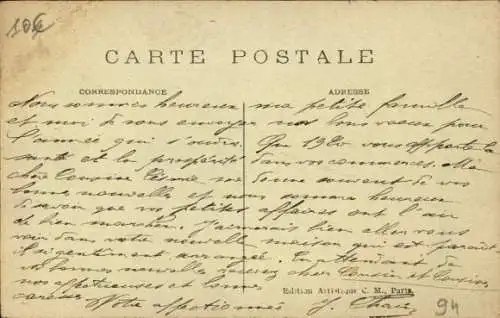 10€
CARTE POSTALE
CORRESPONDANCE ADRESSE
Nous sommes heureux ma petite famille
et moi de vous envoyer nos bons voeux pour
l'année qui s'ouvre. Que 1920 vous apporte la
santé et la prospérité dans vos commerces. Ma
chère Cousine me donne souvent de vos
bonnes nouvelles et nous sommes heureux
de savoir que vos petites affaires ont l'air
de bien marcher. J'aimerais bien aller vous
voir dans votre nouvelle maison qui est paraît
il gentiment arrangée. En attendant de
vos bonnes nouvelles recevez cher Cousin et Cousine
nos affectueuses et bonnes
caresses Votre affectionné J.
Edition Artistique C. M., Paris.
94